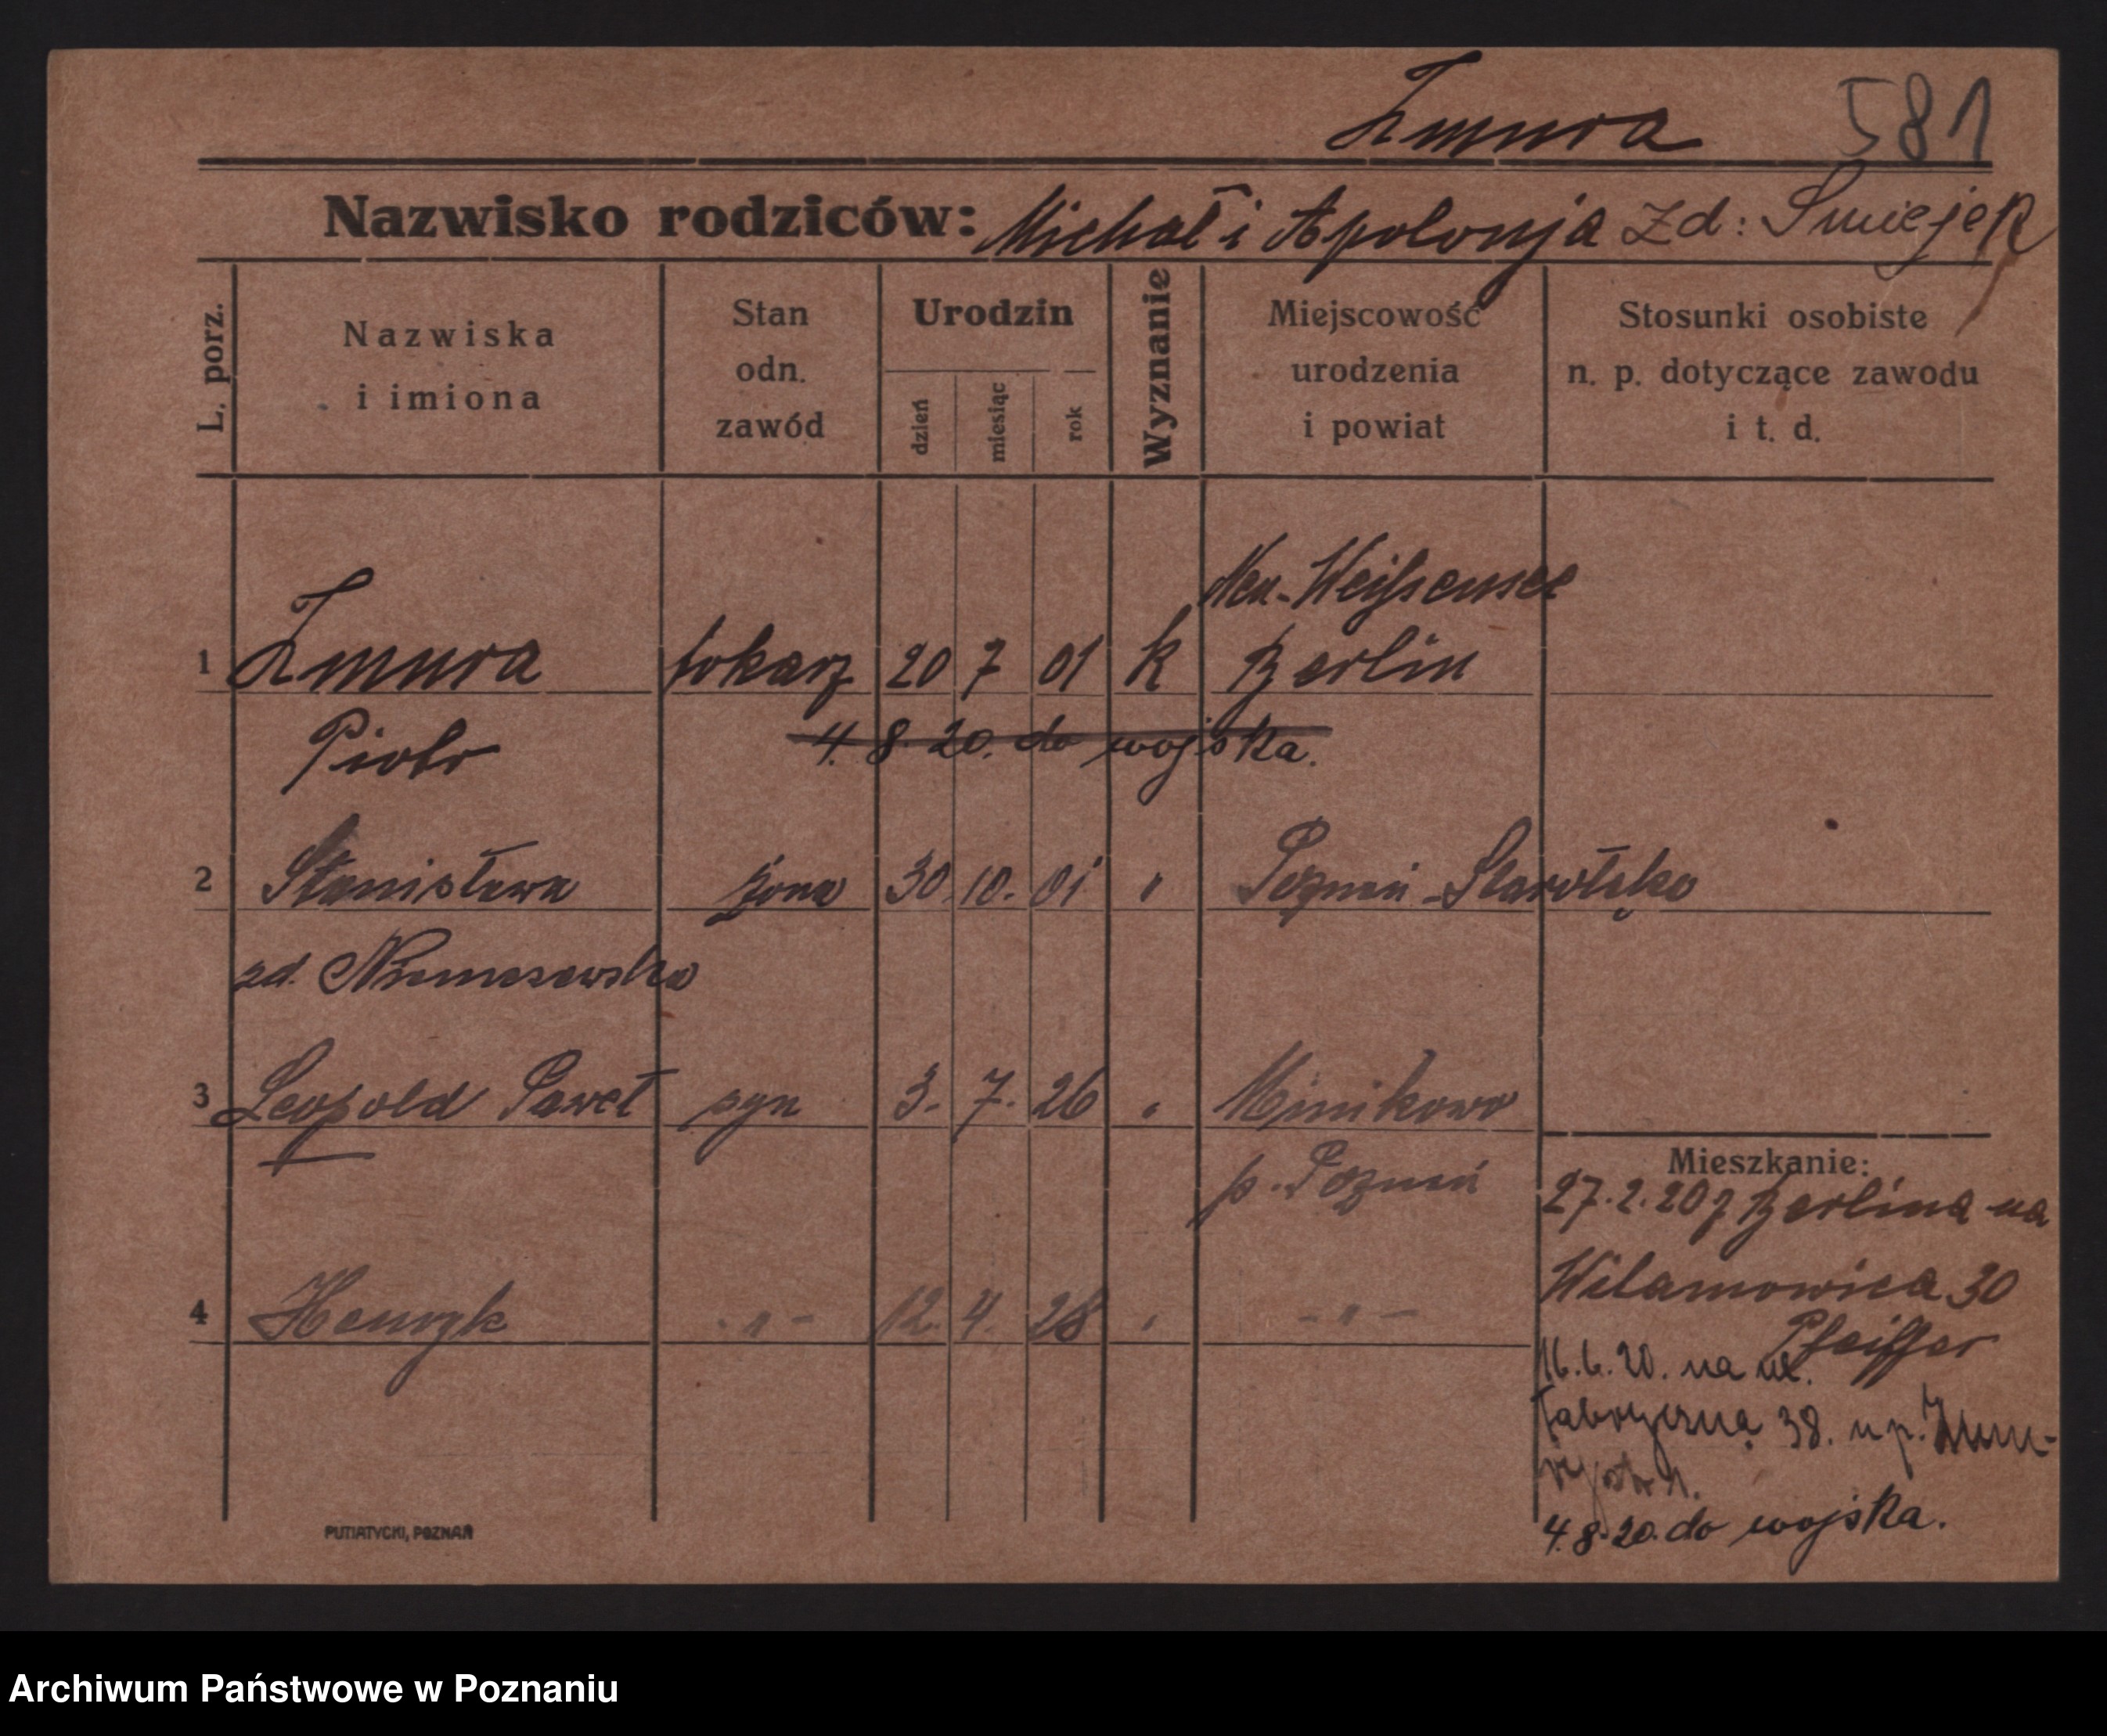 Zmura 581
Nazwisko rodziców: Michał i Apolonja zd: Śmiejek
L. porz.
Nazwiska
i imiona
Stan
odn.
zawód
Urodzin
dzień
miesiąc
rok
Wyznanie
Miejscowość
urodzenia
i powiat
Stosunki osobiste
n. p. dotyczące zawodu
i t. d.
Neu-Weißensee
1 Zmura tokarz 20 7 01 k Berlin
Piotr 4. 8. 20. do wojska.
2 Stanisława żona 30. 10. 01 " Poznań-Starołęka
zd.
3 Leopold Paweł syn 3. 7. 26 " Minikowo
p. Poznań
4 Henryk - " - 12. 4. 28 " - " -
Mieszkanie:
27. 2. 20 z Berlina na
Wilamowica 30
Pfeiffer
16. 6. 20. na ul.
Fabryczną 38. u p.
4. 8. 20. do wojska.
PUTIATYCKI, POZNAŃ
Archiwum Państwowe w Poznaniu